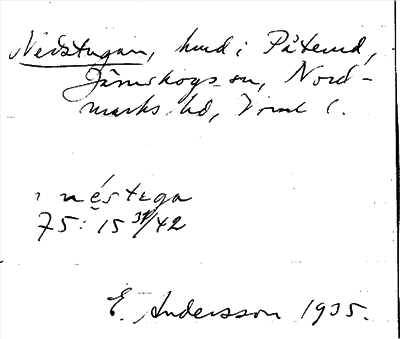 Nedstugan, hmd i Påterud,
Järnskogs sn, Nord-
marks hd, Vrml l.
i néstuga
75: 15 37/42
E. Andersson 1935.